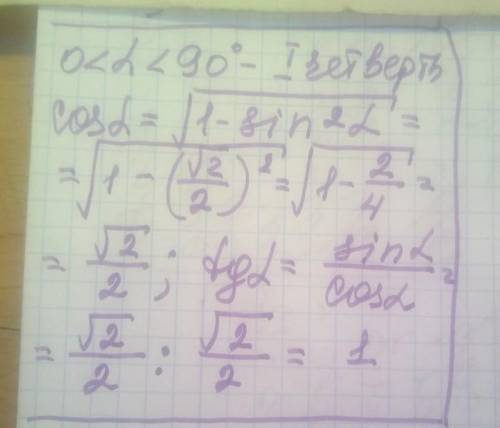 0<α<90° - I четверть
cosα = √(1-sin²α) =
= √(1-(√2/2)²) = √(1-2/4) =
= √2/2; tgα = sinα/cosα =
= √2/2 : √2/2 = 1